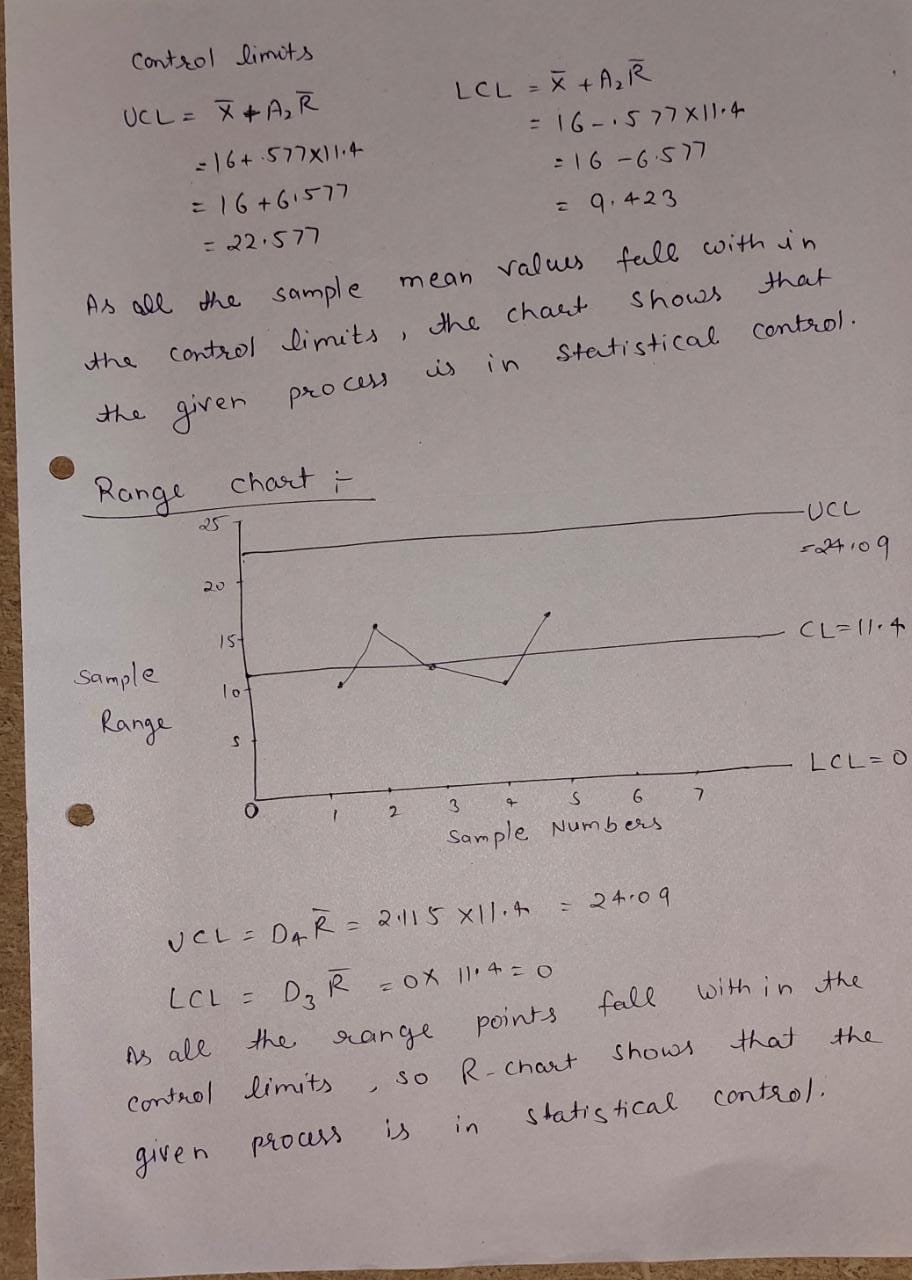 Control limits
UCL = X̄ + A₂ R̄
= 16 + .577x11.4
= 16 + 6.577
= 22.577
LCL = X̄ + A₂ R̄
= 16 - .577x11.4
= 16 - 6.577
= 9.423
As all the sample mean values fall with in
the control limits, the chart shows that
the given process is in statistical control.
Range chart :-
25
20
15
10
5
0
Sample
Range
UCL
=24.09
CL=11.4
LCL=0
1 2 3 4 5 6 7
Sample Numbers
UCL = D₄ R̄ = 2.115 x11.4 = 24.09
LCL = D₃ R̄ = 0x 11.4 = 0
As all the range points fall with in the
control limits, so R-chart shows that the
given process is in statistical control.